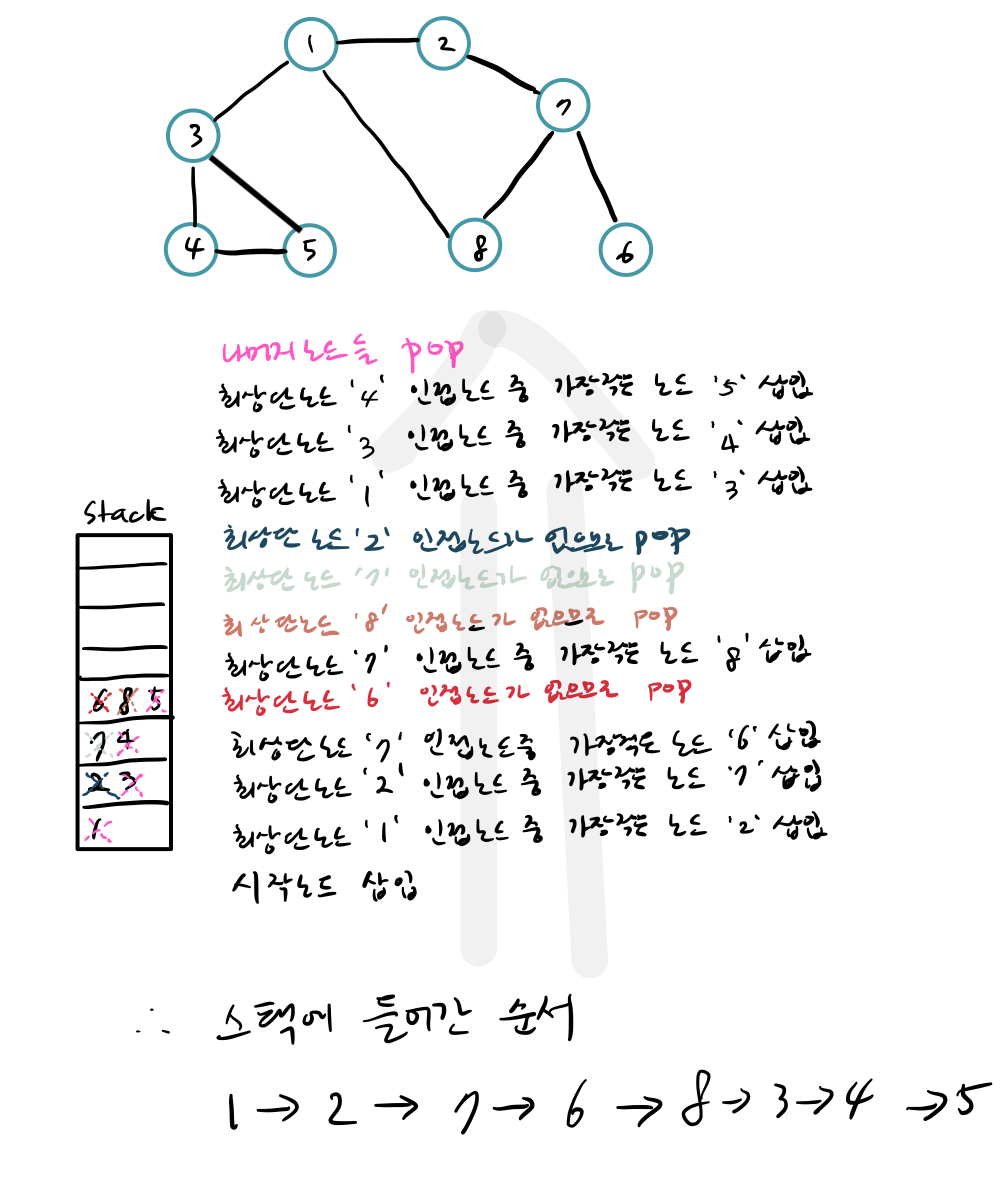 1 2
7
3
4 5 8 6
나머지노드들 pop
최상단노드 '4' 인접노드 중 가장작은 노드 '5' 삽입
최상단노드 '3 인접노드 중 가장작은 노드 '4' 삽입
최상단노드 '1' 인접노드 중 가장작은 노드 '3' 삽입
stack
최상단 노드 '2' 인접노드가 없으므로 pop
최상단노드 '7' 인접노드가 없으므로 pop
최상단노드 '8' 인접노드가 없으므로 pop
최상단노드 '7' 인접노드 중 가장작은 노드 '8' 삽입
최상단노드 '6' 인접노드가 없으므로 pop
6 8 5
최상단노드 '7' 인접노드중 가장적은 노드 '6' 삽입
7 4
최상단노드 '2' 인접노드 중 가장작은 노드 '7' 삽입
2 3
최상단노드 '1' 인접노드 중 가장작은 노드 '2' 삽입
1
시작노드 삽입
∴ 스택에 들어간 순서
1 → 2 → 7 → 6 → 8 → 3 → 4 → 5